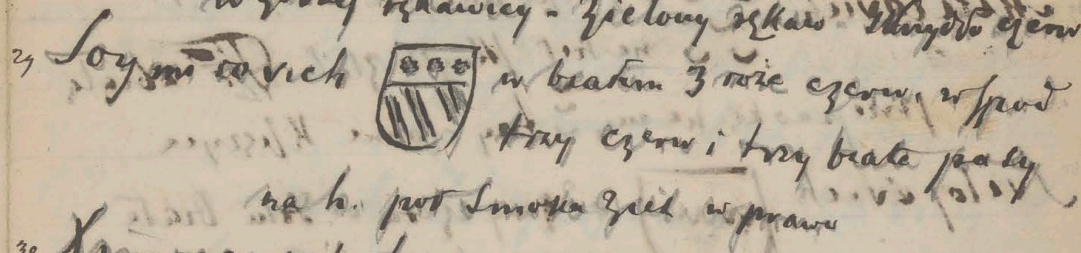 w rękawicy - zielony rękaw skrzydło czerw
29 Soymirovich w białem 3 róże czerw. w spod
trzy czerw i trzy białe pasy
na h. poł smoka ziel w prawo
30